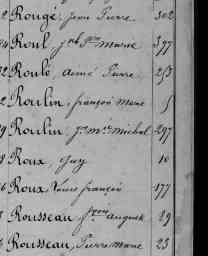 Rougé, Jean Pierre 302
Roul, Jph Pre Marie 377
Roulé, Aimé Pierre 253
Roulin, françois Marie 5
Roulin, Jn Mie Michel 297
Roux, Guy 10
Roux, Louis françois 177
Rousseau, frçois auguste 19
Rousseau, Pierre Marie 23